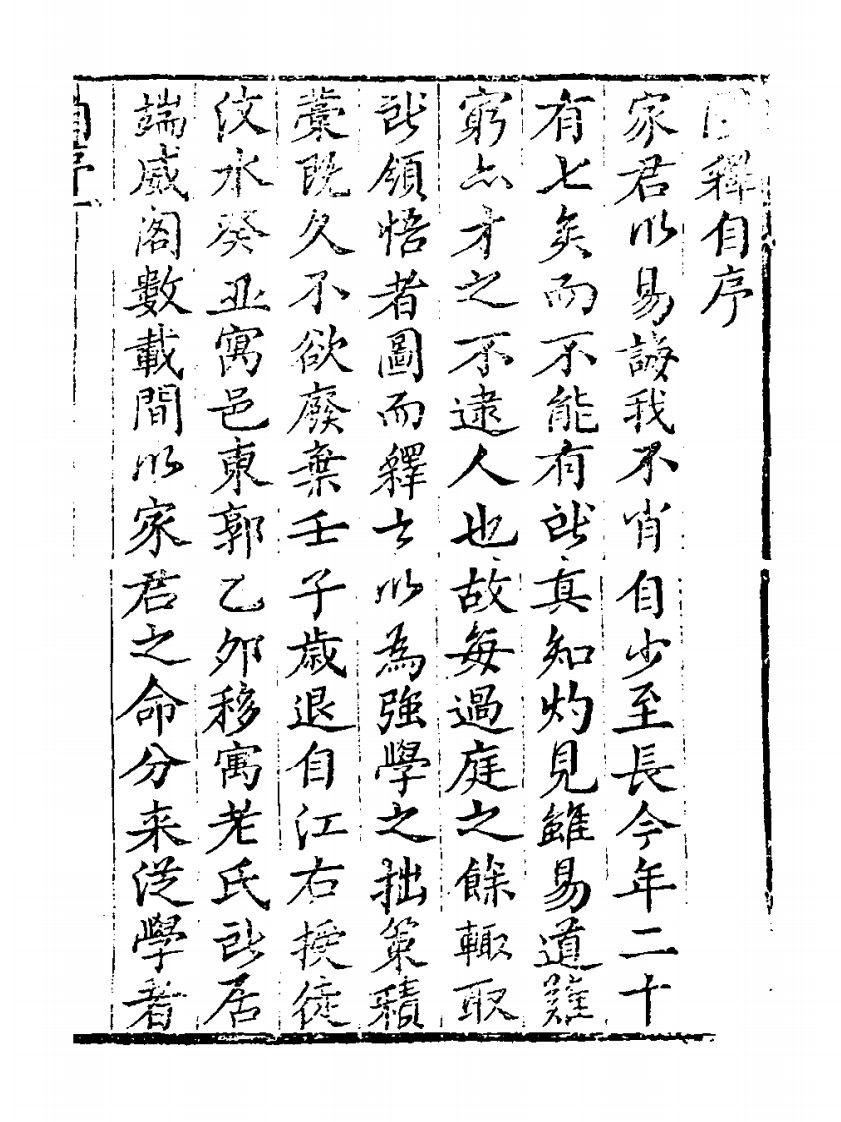 圖釋自序
家君以易誨我不肖自少至長今年二十
有七矣而不能有所真知灼見雖易道難
窮亦才之不逮人也故每過庭之餘輙取
所領悟者圖而釋之以為強學之拙策積
藁既久不欲廢棄壬子歲退自江右授徒
汶水癸丑寓邑東郭乙夘移寓老氏所居
端威閣數載間以家君之命分来從學者
自序一